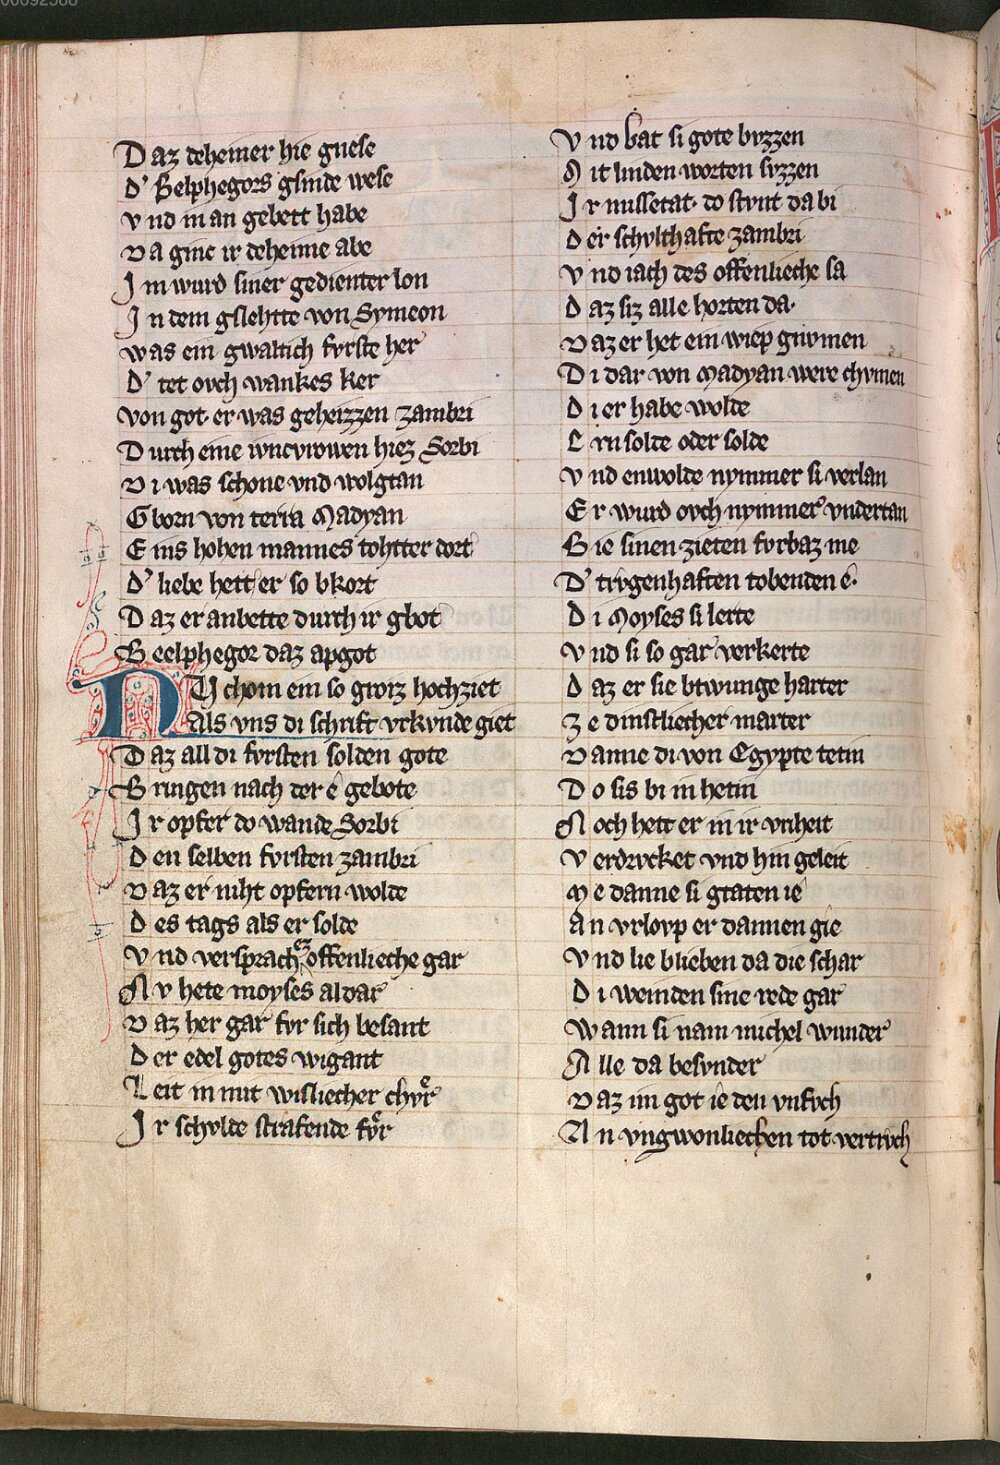 00092588
Daz deheiner hie gnese
D' Belphegors gsinde wese
Vnd in an gebett habe
Da ginc ir deheine abe
Im wurd siner gedienter lon
In dem gslehtte von Symeon
Was ein gwaltich fvrste her
D' tet ovch wankes ker
Von got· er was geheizzen zambri
Durch eine ivncvrowen hiez Sorbi
Di was schone vnd wolgtan
Gborn von terra Madyan
Eins hohen mannes tohtter dort
D' liebe hett er so bkort
Daz er anbette durch ir gbot
Beelphegor daz apgot
NV chom ein so groiz hochziet
Als vns di schrift vrkvnde giet
Daz all di fvrsten solden gote
Bringen nach der ê gebote
Ir opfer do wande Sorbi
Den selben fvrsten zambri
Daz er niht opfern wolde
Des tags als er solde
Vnd versprach ez offenlieche gar
Nv hete moyses aldar
Daz her gar fvr sich besant
Der edel gotes wigant
Leit in mit wisliecher chvr
Ir schvlde strafende fvr
Vnd bat si gote bvzzen
Mit linden worten svzzen
Ir missetat· do stvnt da bi
Der schvlthafte zambri
Vnd iach des offenlieche sa
Daz siz alle horten da·
Daz er het ein wiep gnvmen
Di dar von Madyan were chvmen
Di er habe wolde
Ern solde oder solde
Vnd enwolde nymmer si verlan
Er wurd ovch nymmer vndertan
Bie sinen zieten fvrbaz me
D' trvgenhaften tobenden ê·
Di Moyses si lerte
Vnd si so gar verkerte
Daz er sie btwunge harter
Ze dinstliecher marter
Danne di von Egypte tetin
Do sis bi in hetin
Noch hett er in ir vriheit
Verdrvcket vnd hin geleit
Me danne si gtaten ie
An vrlovp er dannen gie
Vnd lie blieben da die schar
Di weinden sine rede gar
Wann si nam michel wunder
Alle da besvnder
Daz im got ie den vnfvch
An vngwonliechen tot vertrvch